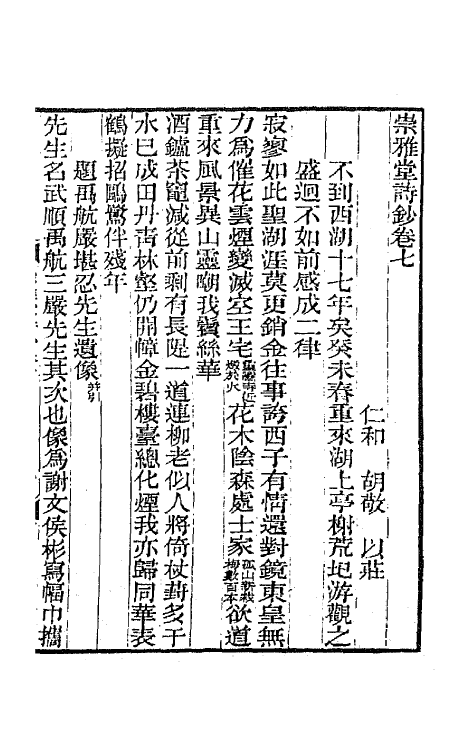 崇雅堂詩鈔卷七
仁和　胡敬　以莊
不到西湖十七年矣癸未春重來湖上亭榭荒圮游觀之
盛迥不如前感成二律
寂寥如此聖湖涯莫更銷金往事誇西子有情還對鏡東皇無
力爲催花雲煙變滅空王宅花木陰森處士家孤山新栽梅數百本欲道
重來風景異山靈嘲我鬢絲華
酒鑪茶竈減從前剩有長隄一道連柳老似人將倚杖葑多于
水已成田丹青林壑仍開幛金碧樓臺總化煙我亦歸同華表
鶴擬招鷗鷺伴殘年
題禹航嚴堪忍先生遺像并引
先生名武順禹航三嚴先生其次也像爲謝文侯彬寫幅巾攜